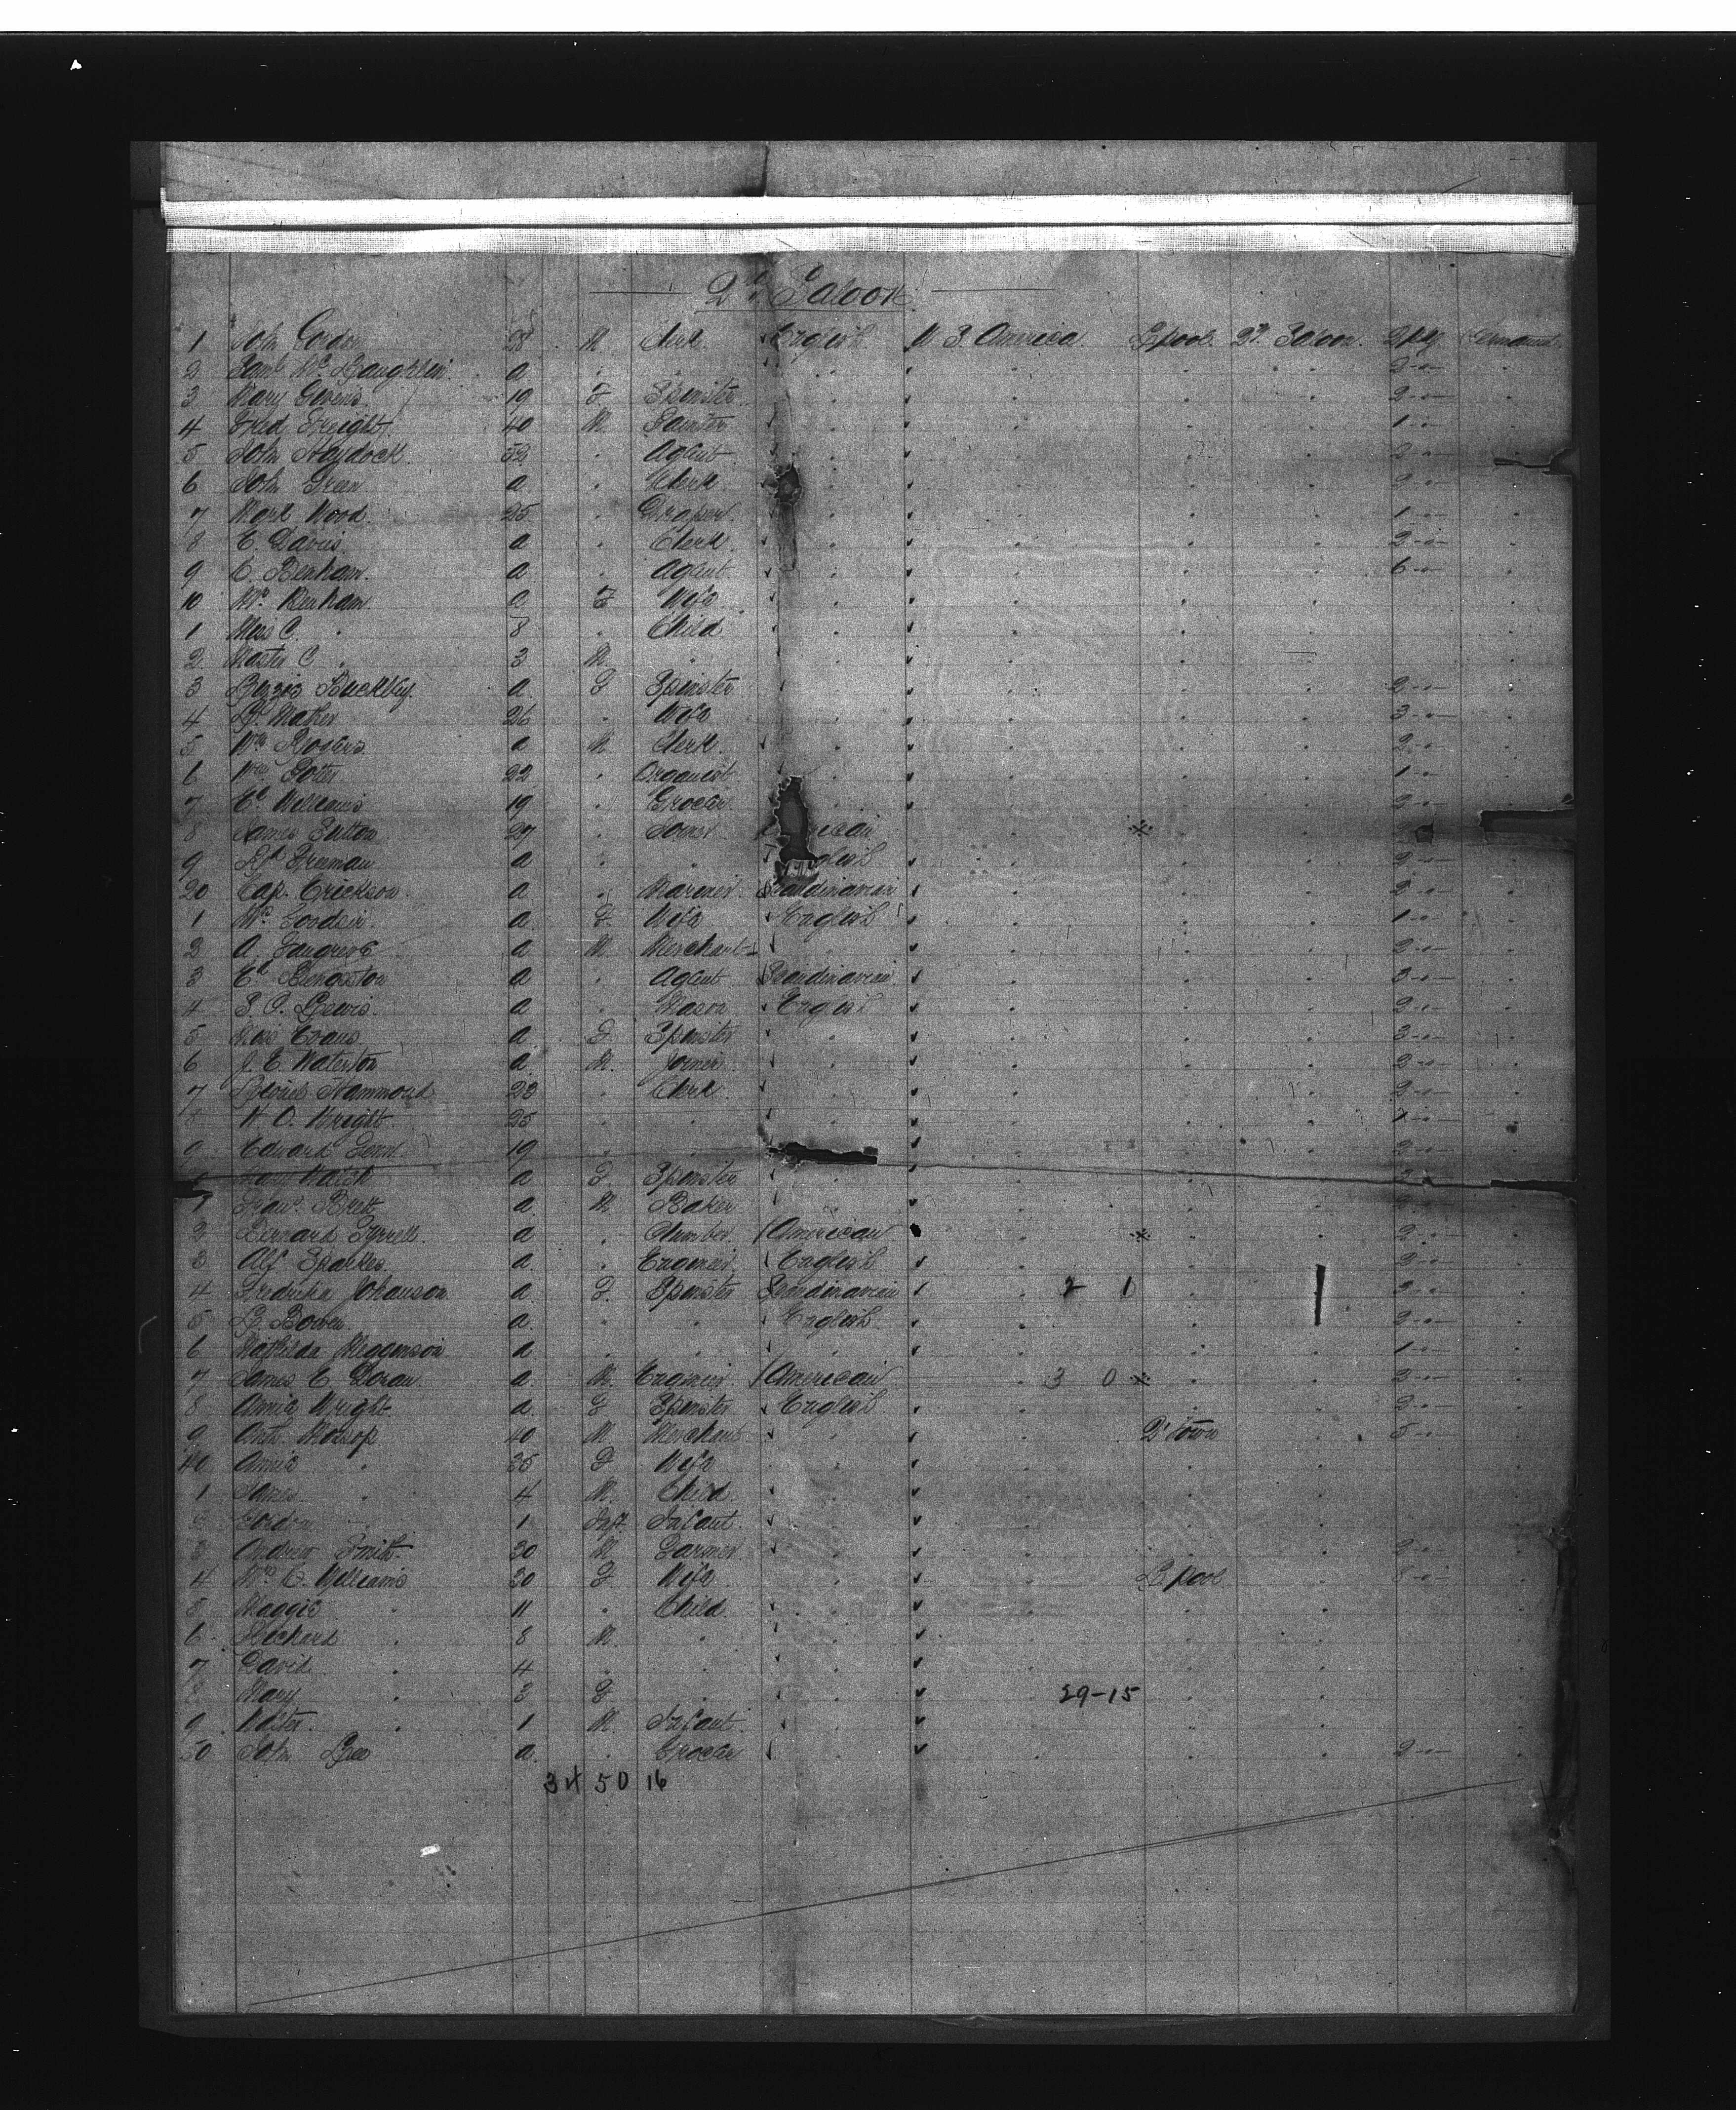 2nd Saloon
1 John Gordon 28 M Clerk English U S America L'pool 2nd Saloon 2 pkg
2 Saml McLaughlin a . . . . . . 2 - .
3 Mary Givens 19 F Spinster . . . . 2 - .
4 Fred Freight 40 M Painter . . . . 1 - .
5 John Haydock 52 . Agent . . . . 2 - .
6 John Green a . Clerk . . . . 2 - .
7 Mark Wood 25 . Draper . . . . 1 - .
8 E. Davis a . Clerk . . . . 2 - .
9 C. Benham a . Agent . . . . 6 - .
10 Mrs Benham a F Wife . . . .
1 Miss C. " 8 . Child . . . .
2 Master C. " 3 M . . . . .
3 Lizzie Buckley a F Spinster . . . . 2 - .
4 Mather 26 . Wife . . . . 3 - .
5 Wm Rogers a M Clerk . . . . 2 - .
6 Wm Potter 22 . Organist . . . . 1 - .
7 Ed Williams 19 . Grocer . . . . 2 - .
8 James Sutton 27 . rican *
9 Freeman a . . glish . . . 2 - .
20 Cap. Erickson a . Mariner Scandinavian . . . 2 - .
1 Mrs Goodsir a F Wife English . . . 1 - .
2 A. a M Merchant . . . . 2 - .
3 Ed Bengston a . Agent Scandinavian . . . 3 - .
4 S. C. Lewis a . Mason English . . . 2 - .
5 Miss Evans a F Spinster . . . . 3 - .
6 J. E. Waterton a M. Joiner . . . . 2 - .
7 Louis Hammond 28 . Clerk . . . . 2 - .
8 W. O. Wright 25 . . . . . . 1 - .
9 Edward 19 . . . . . . 2 - .
Walsh a F Spinster . . . .
1 Brett a M Baker . . . .
2 Bernard Tyrrell a . Plumber American * 2
3 Alf Sparkes a . Engineer English . . . 2 - .
4 Fredrika Johanson a F. Spinster Scandinavian . 2 1 . 2 - .
5 L. Bowen a . . English . . . 2 - .
6 Mathilda a . . . . . . 1 - .
7 James E Doran a M. Engineer American . 3 0 * 2 - .
8 Annie Wright a F Spinster English . . . 2 - .
9 Anth Mossop 40 M. Merchant . . Q'town . 5 - .
40 Annie " 35 F Wife . . . .
1 James " 4 M. Child . . . .
2 Gordon " 1 Inft Infant . . . .
3 Andrew Smith 30 M Farmer . . . . 2 - .
4 Mrs C. Williams 30 F Wife . . L'pool . 8 - .
5 Maggie " 11 . Child . . . .
6 Richard " 8 M . . . . .
7 David " 4 . . . . . .
8 Mary " 3 F . . 29-15 . .
9 " 1 M. Infant . . . .
50 John Lee a . Grocer . . . . 2 - .
34 50 16